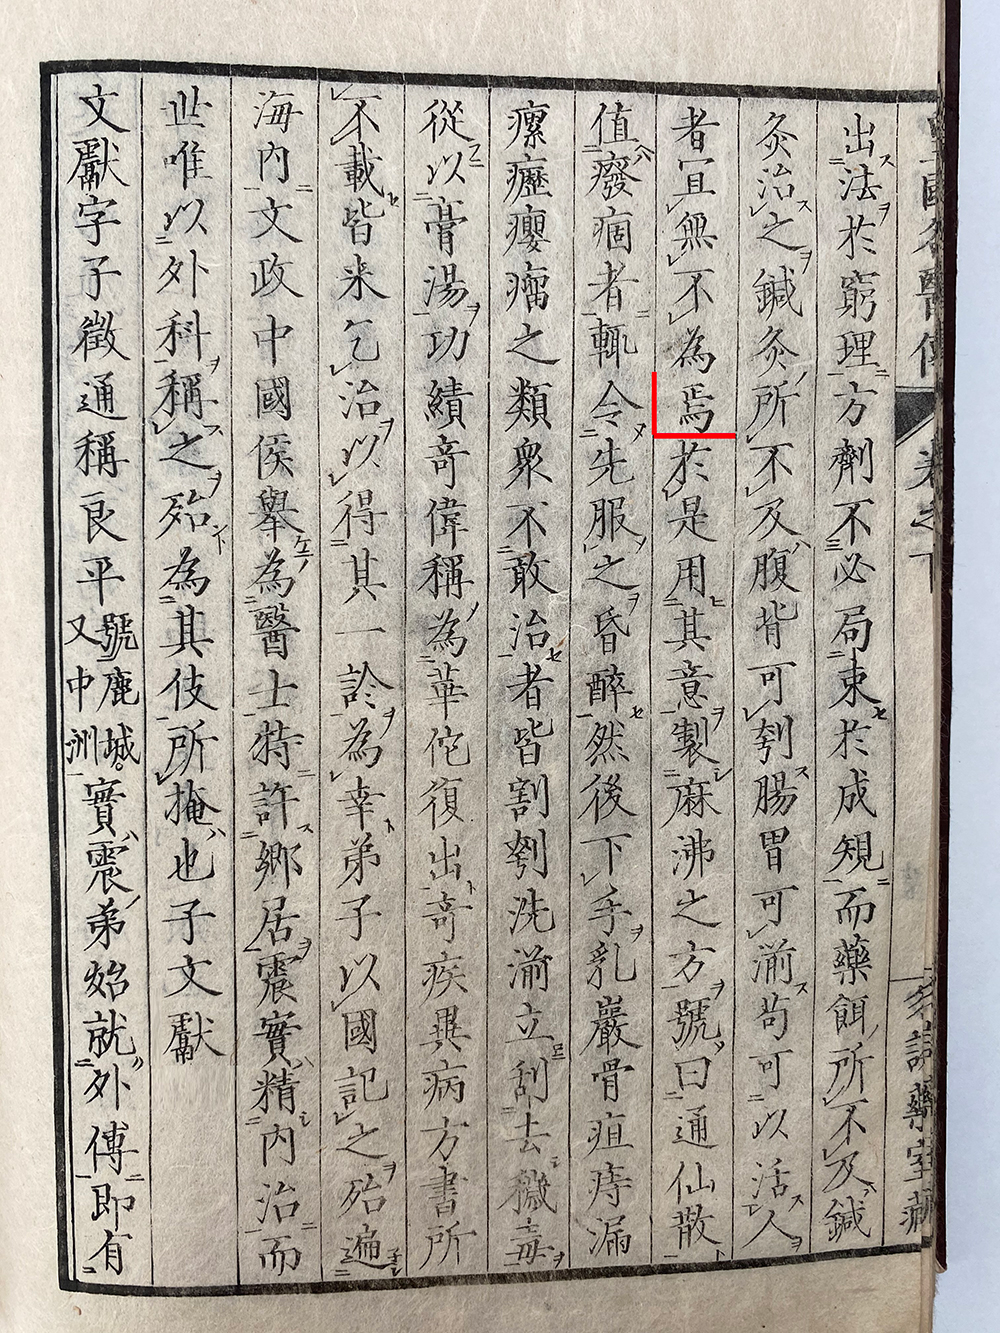 皇國名醫傳 卷之下
出法於窮理方劑不必局束於成規而藥餌所不及鍼
灸治之鍼灸所不及腹背可刳腸胃可湔苟可以活人
者宜無不為焉於是用其意製麻沸之方號曰通仙散
值癈痼者輒令先服之昏醉然後下手乳巖骨疽痔漏
瘰癧癭瘤之類衆不敢治者皆割刳洗湔立刮去穢毒
從以膏湯功績奇偉稱為華佗復出奇疾異病方書所
不載皆来乞治以得其一診為幸弟子以國記之殆遍
海內文政中國侯舉為醫士特許鄉居震實精內治而
世唯以外科稱之殆為其伎所掩也子文獻
文獻字子徵通稱良平號鹿城。又中洲實震弟始就外傅即有